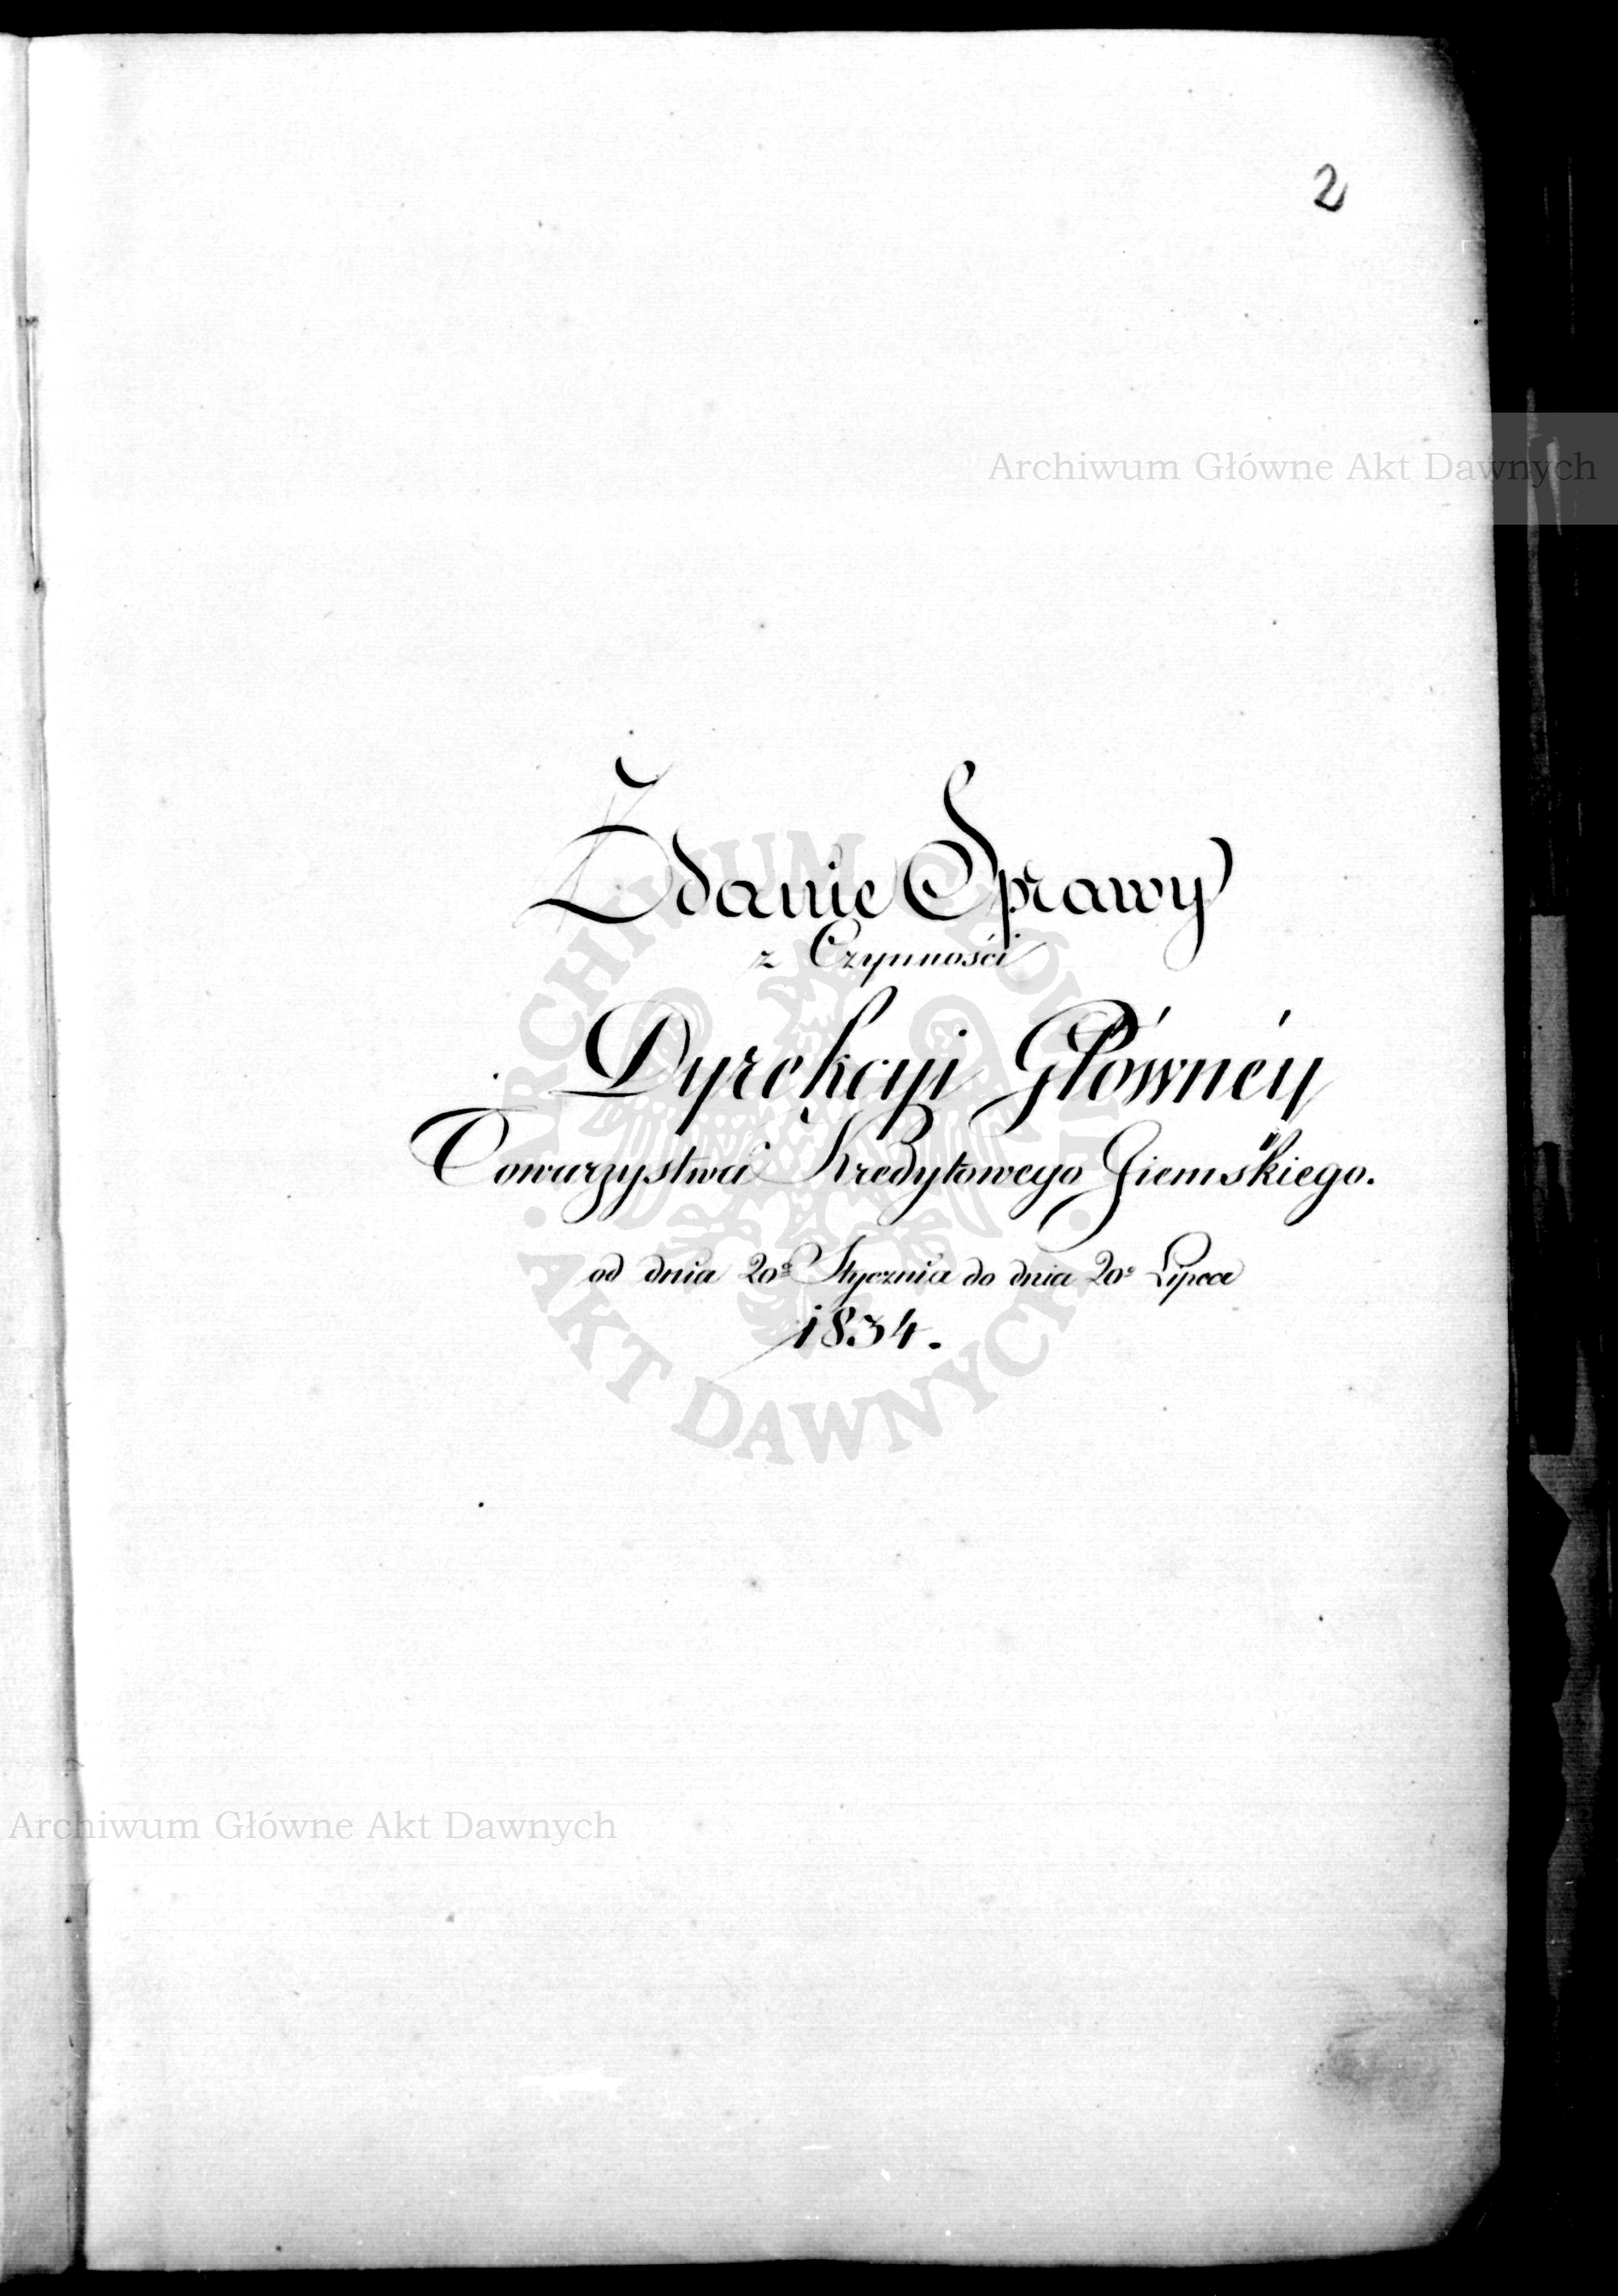 2
Archiwum Główne Akt Dawnych
Zdanie Sprawy
z Czynności
Dyrekcyi Głównéy
Towarzystwa Kredytowego Ziemskiego.
od dnia 20º Stycznia do dnia 20º Lipca
1834.
ARCHIWUM GŁÓWNE
AKT DAWNYCH
Archiwum Główne Akt Dawnych